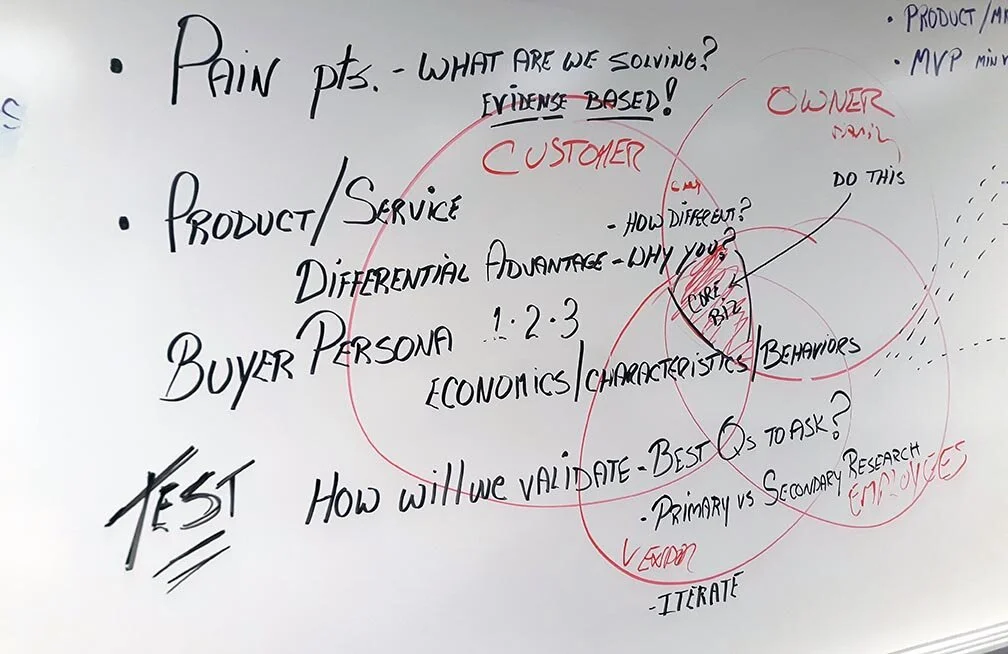 • PRODUCT/
• MVP MIN
S
• PAIN pts. - WHAT ARE WE SOLVING?
EVIDENSE BASED!
OWNER
CUSTOMER
DO THIS
• PRODUCT/SERVICE
- HOW DIFFERENT?
DIFFERENTIAL ADVANTAGE - WHY YOU?
CORE
BIZ
BUYER PERSONA 1·2·3
ECONOMICS/CHARACTERISTICS/BEHAVIORS
TEST HOW will we VALIDATE - BEST Qs TO ASK?
- PRIMARY vs SECONDARY RESEARCH
EMPLOYEES
VENDOR
- ITERATE